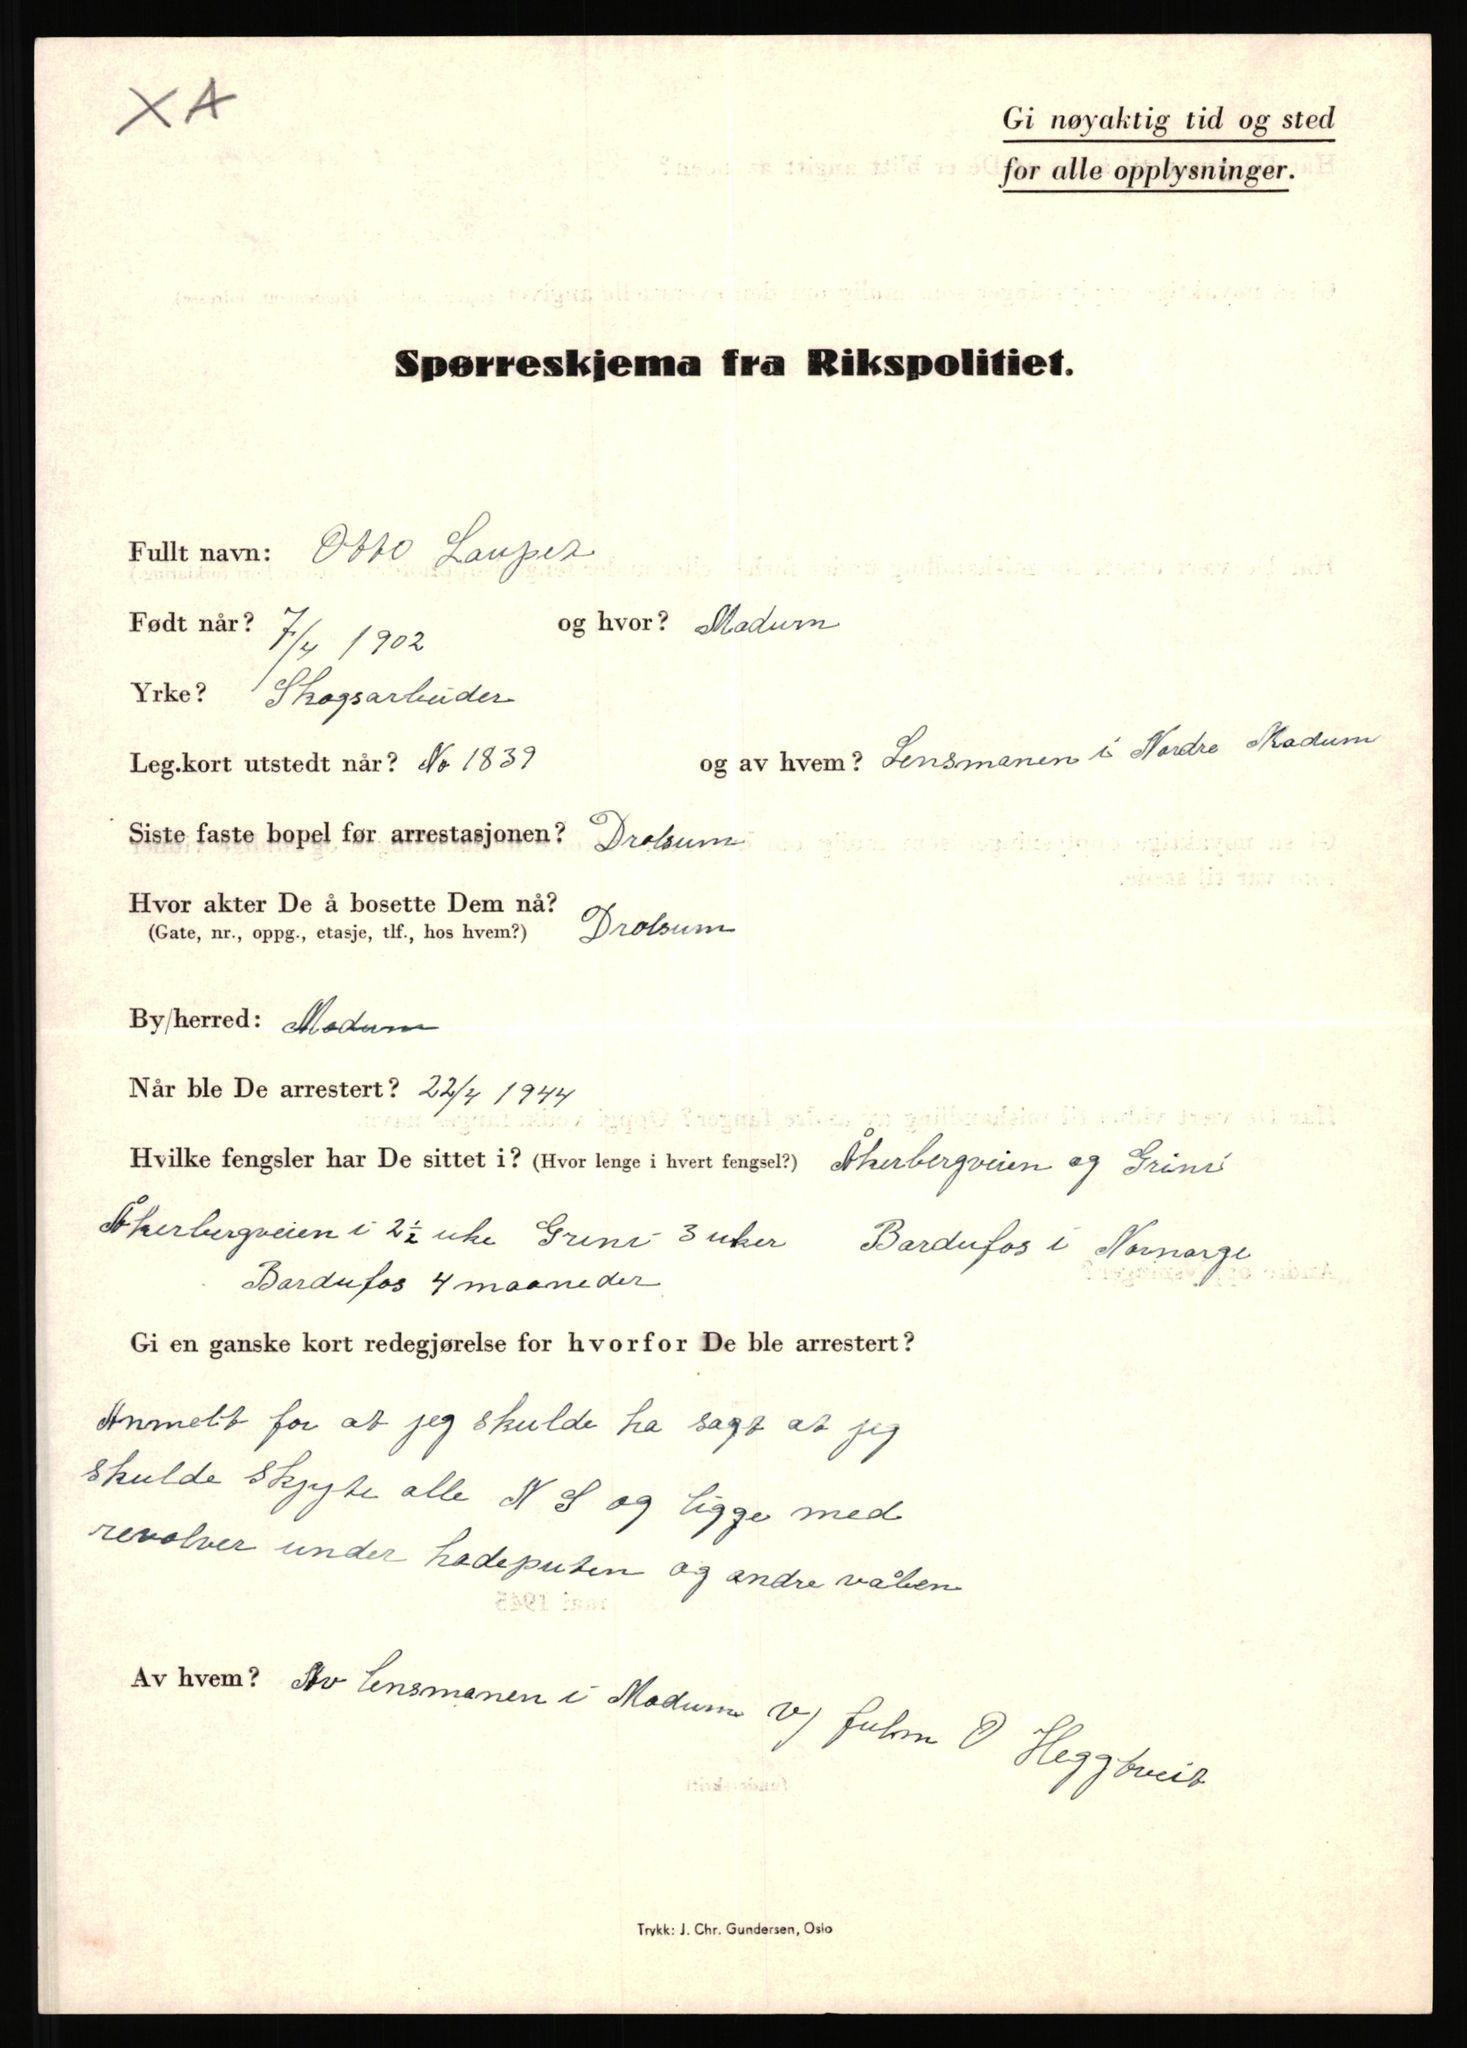 XA
Gi nøyaktig tid og sted
for alle opplysninger.
Spørreskjema fra Rikspolitiet.
Fullt navn: Otto Lauper
Født når? 7/4 1902 og hvor? Modum
Yrke? Skogsarbeider
Leg.kort utstedt når? No 1839 og av hvem? Lensmanen i Nordre Modum
Siste faste bopel før arrestasjonen? Drolsum
Hvor akter De å bosette Dem nå? Drolsum
(Gate, nr., oppg., etasje, tlf., hos hvem?)
By/herred: Modum
Når ble De arrestert? 22/4 1944
Hvilke fengsler har De sittet i? (Hvor lenge i hvert fengsel?) Åkerbergveien og Grini
Åkerbergveien i 2½ uke Grini 3 uker Bardufos i Nornorge
Bardufos 4 maaneder
Gi en ganske kort redegjørelse for hvorfor De ble arrestert?
Anmelt for at jeg skulde ha sagt at jeg
skulde skjyte alle N S og ligge med
revolver under hodeputen og andre våben
Av hvem? Av lensmanen i Modum v/ fulm O Heggtveit
Trykk: J. Chr. Gundersen, Oslo